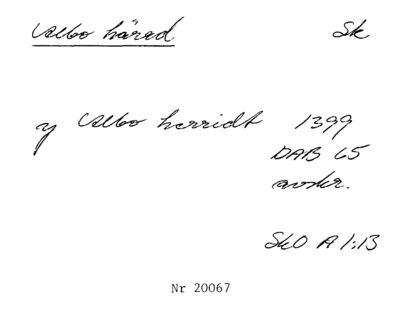 Albo härad Sk
y Albo herridt 1399
DAB 65
avskr.
SkO A 1:13
Nr 20067